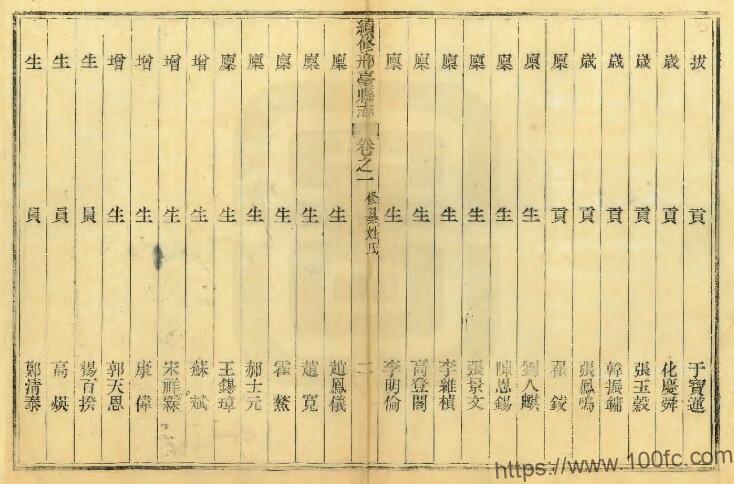 拔貢于寶蓮
歲貢化慶舜
歲貢張玉㲄
歲貢韓振鏞
歲貢張鳳鳴
廩貢翟錂
廩生劉八麒
廩生陳恩錫
廩生張景文
廩生李維楨
廩生高登閣
廩生李明倫
續修邢臺縣志 卷之一 修纂姓氏 二
廩生趙鳳儀
廩生趙寬
廩生霍鰲
廩生郝士元
廩生王錫璋
增生蘇斌
增生宋祥霖
增生康偉
增生郭天恩
生員楊百揆
生員高煐
生員鄭清泰
https://www.100fc.com